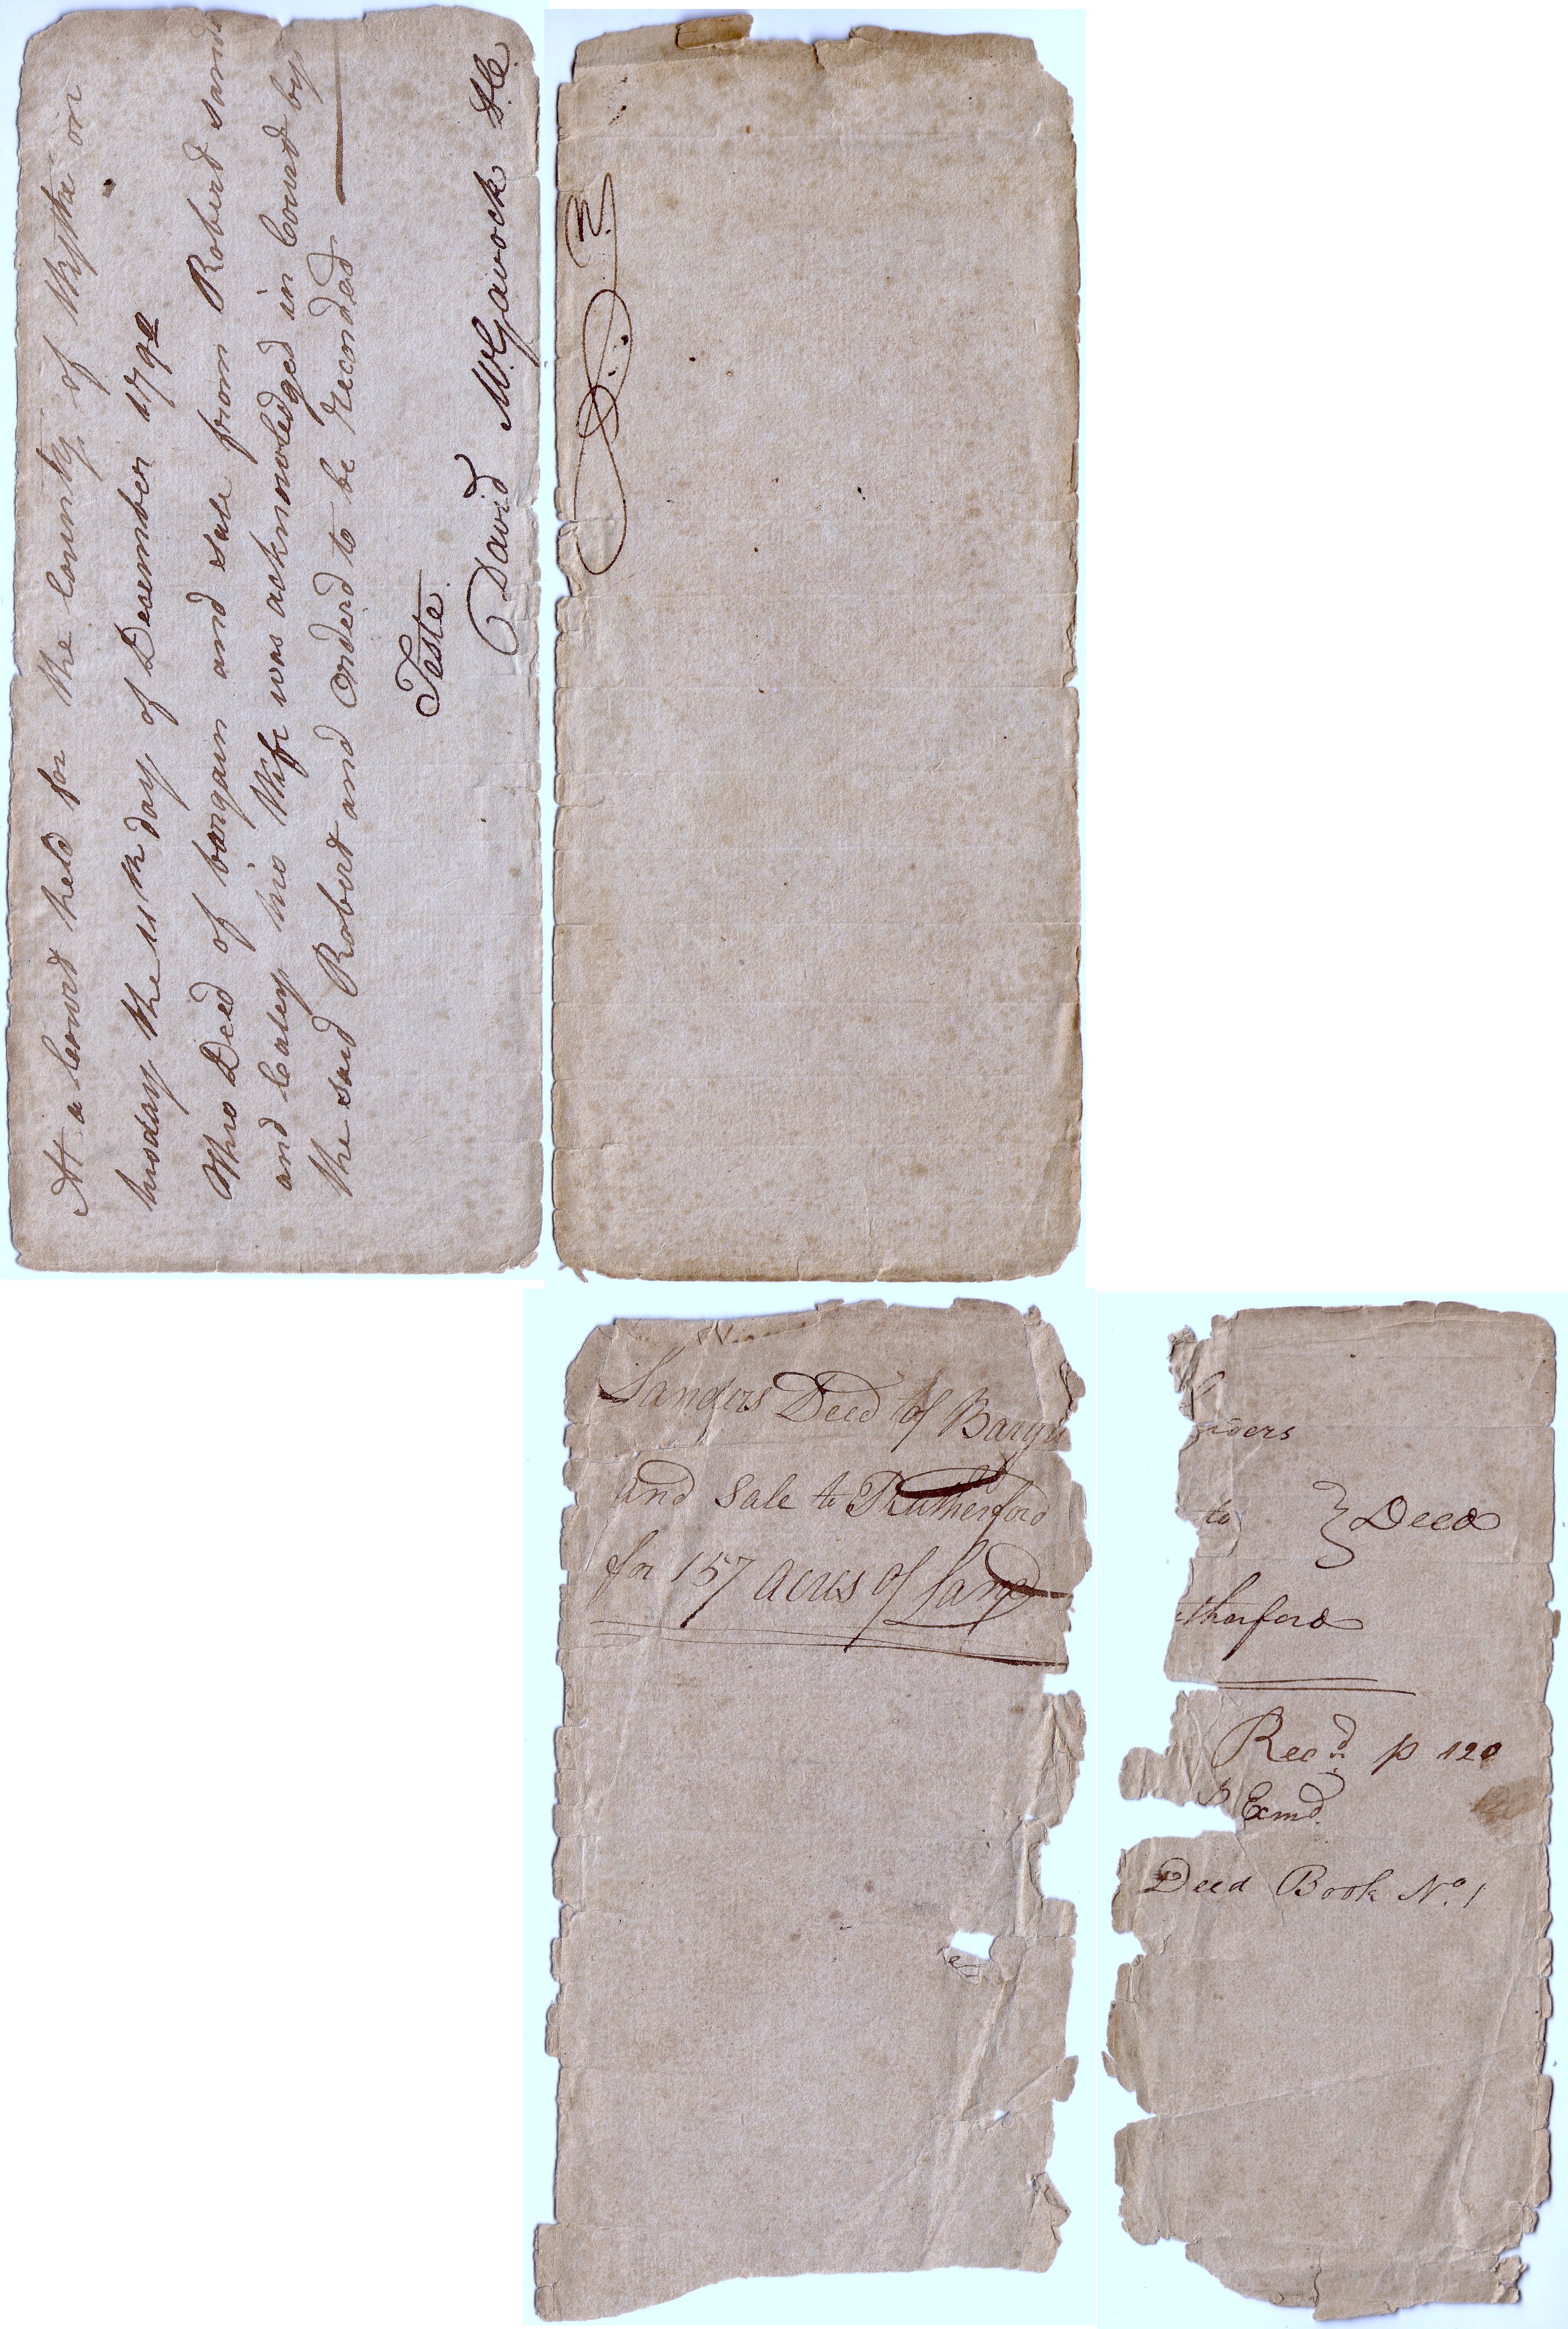 At a Court held for the County of Wythe on
tusday the 11th day of December 1792
This Deed of bargain and sale from Robert Sande
and Catey his Wife was acknowledged in Court by
the said Robert and Orderd to be recorded
Teste
David McGavock DC
Sanders Deed of Barga
and Sale to Rutherford
for 157 acres of Land
ders
to } Deed
therford
Recd. p 120
Exmd.
Deed Book No. 1